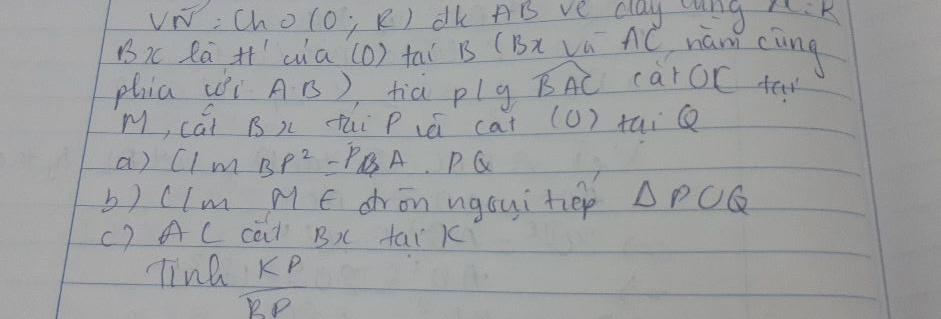 VN : Cho (O; R) dk AB vẽ dây cung AC = R
Bx là tt' của (O) tại B (Bx và AC nằm cùng
phía với AB), tia p/g BAC cắt OC tại
M, cắt Bx tại P và cắt (O) tại Q
a) C/m BP² = PA . PQ
b) C/m M ∈ đròn ngoại tiếp Δ POQ
c) AC cắt Bx tại K
Tính KP
BP